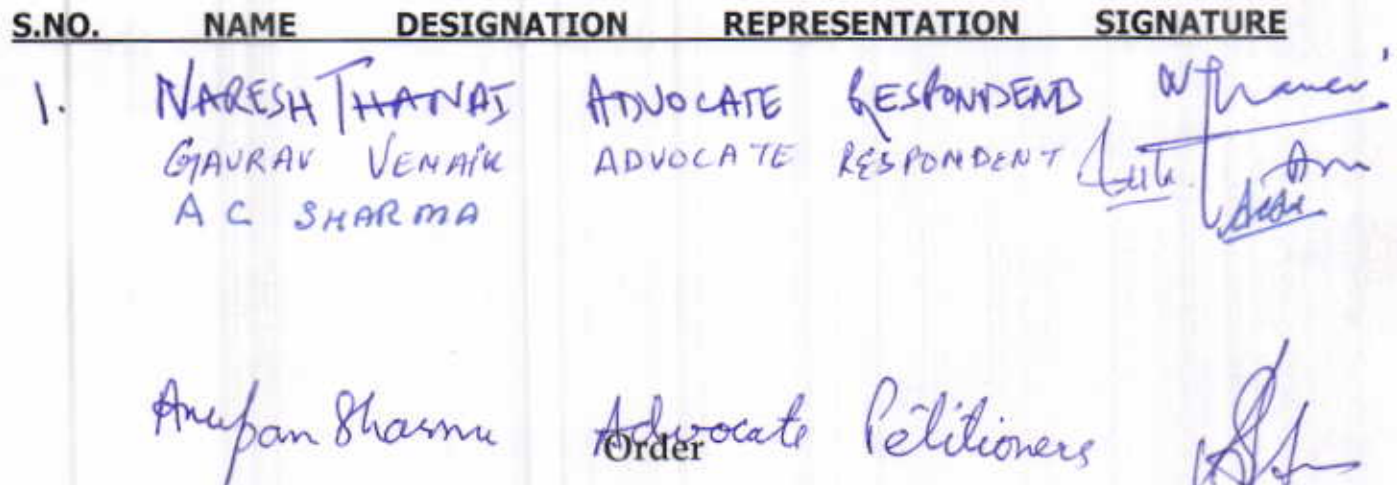 S.NO. NAME DESIGNATION REPRESENTATION SIGNATURE
1. NARESH THANAI ADVOCATE RESPONDENTS
GAURAV VENAIK ADVOCATE RESPONDENT
A C SHARMA
Anupam Sharma Advocate Petitioners
Order